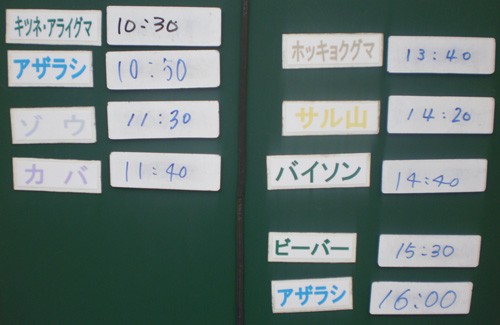 キツネ・アライグマ 10:30
アザラシ 10:50
ゾウ 11:30
カバ 11:40
ホッキョクグマ 13:40
サル山 14:20
バイソン 14:40
ビーバー 15:30
アザラシ 16:00